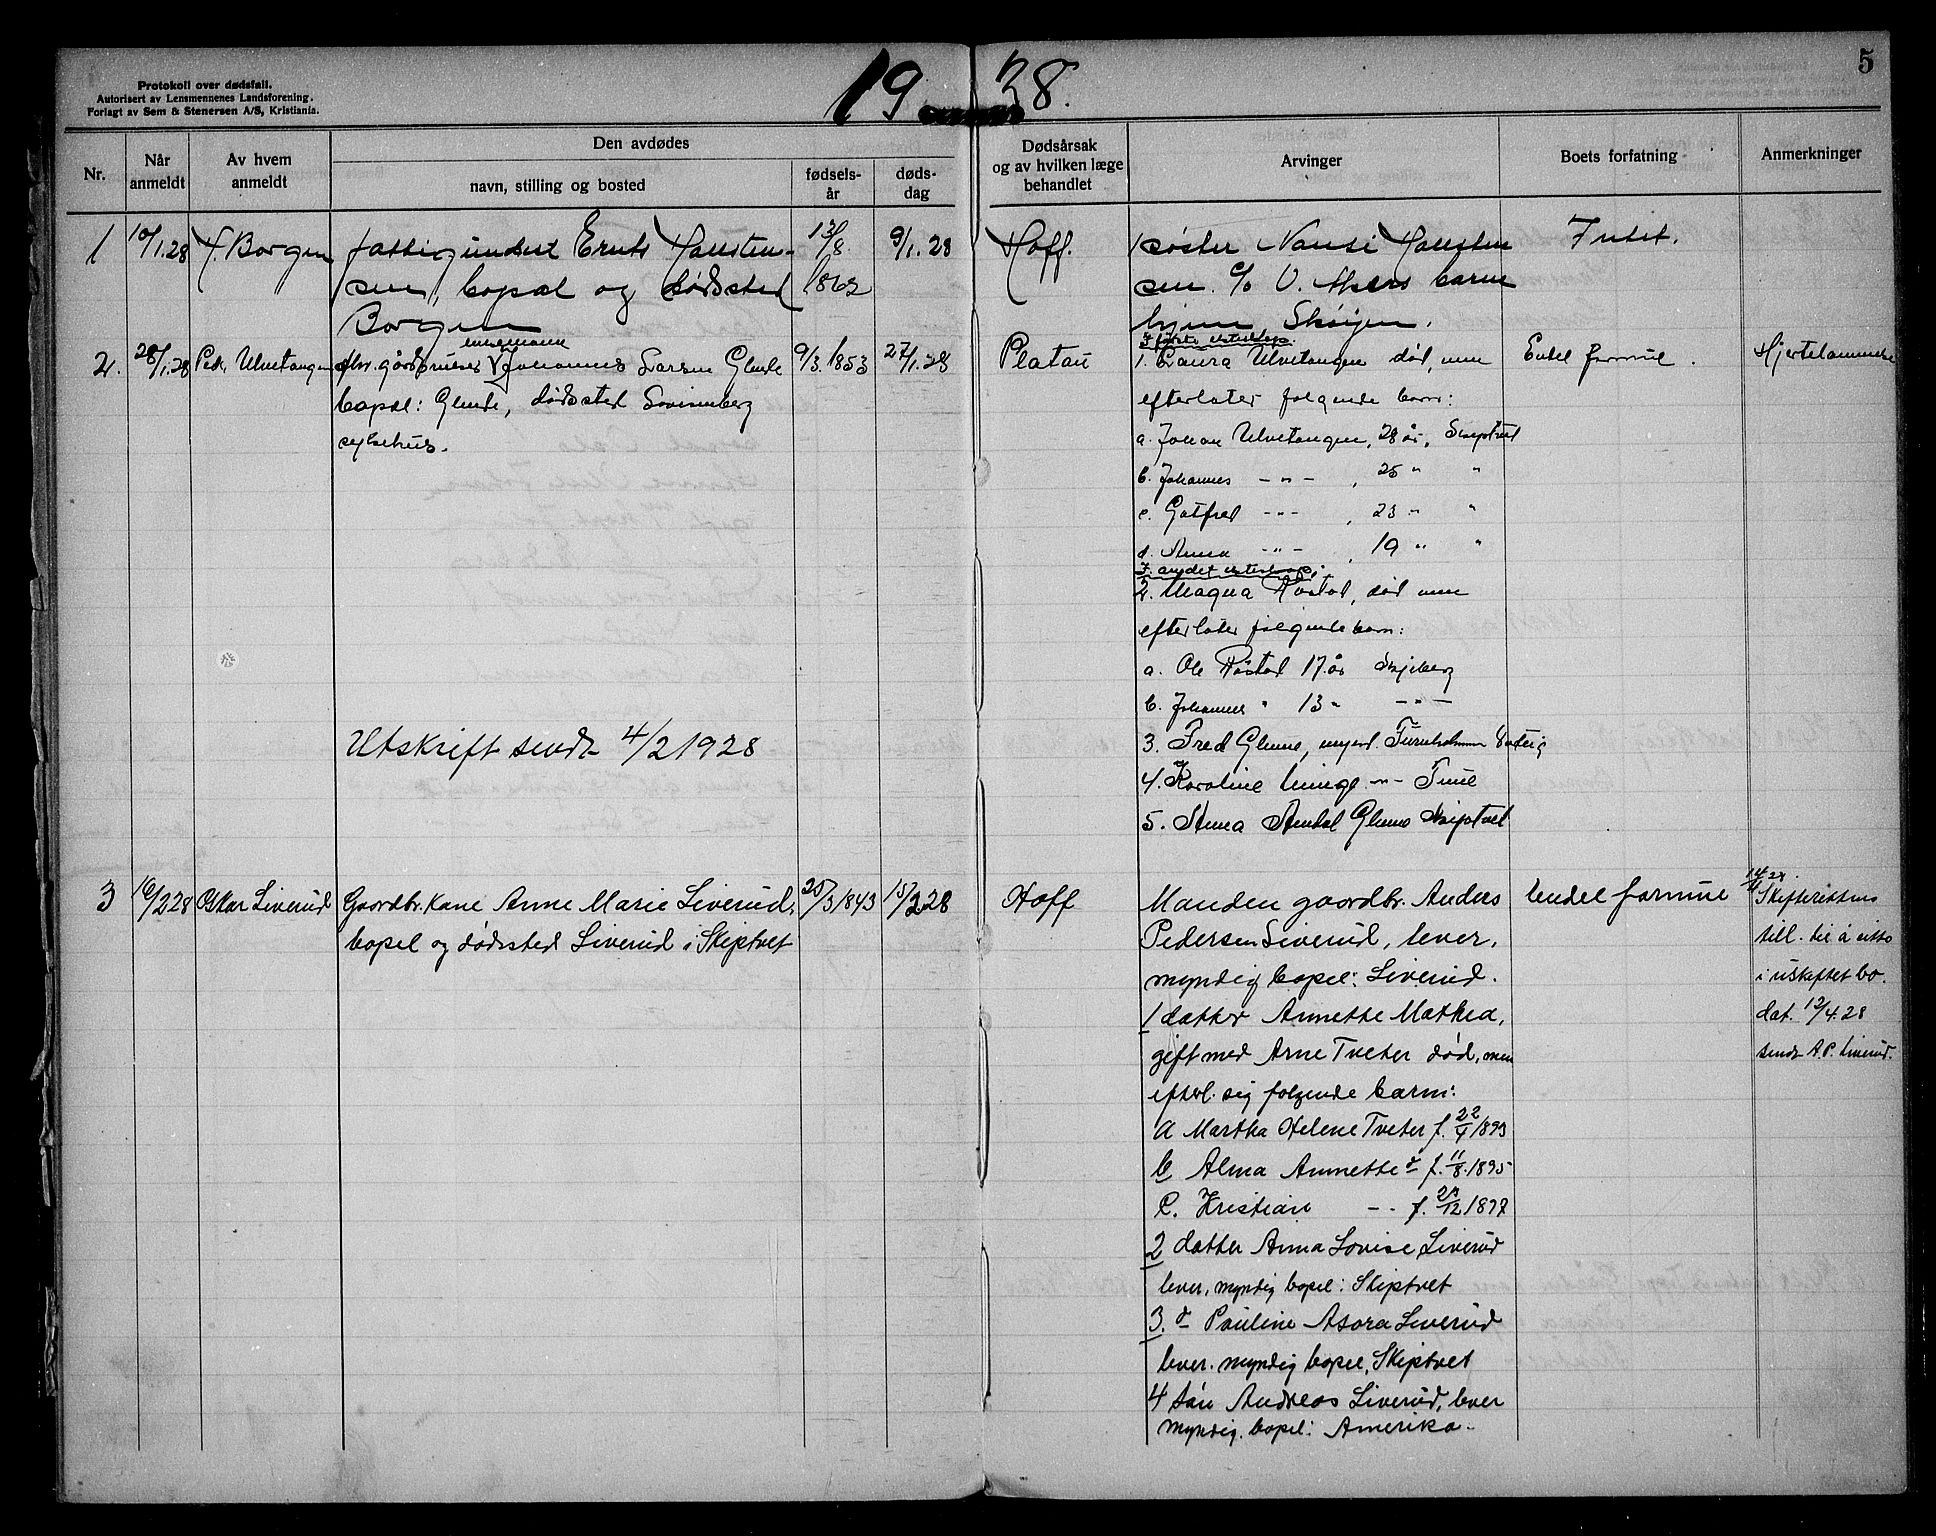 1928.
5
Protokoll over dødsfall.
Autorisert av Lensmennenes Landsforening.
Forlagt av Sem & Stenersen A/S, Kristiania.
Nr.
Når anmeldt
Av hvem anmeldt
Den avdødes
navn, stilling og bosted
fødselsår
dødsdag
Dødsårsak og av hvilken læge behandlet
Arvinger
Boets forfatning
Anmerkninger
1
10/1.28
Borgen
fattigunderst
bopæl og dødssted
Borgen
13/8 1863
9/1.28
Hoff.
1 søster
Skøyen.
Intet.
2.
28/1.28
Ped. Ulvetangen
enkemann
Johannes Larsen Glende
bopæl: Glende, dødssted Lovisenberg
sykehus.
Utskrift sendt 4/2 1928
9/3.1853
27/1.28
Platau
I første ekteskap.
1. Laura Ulvetangen død, men
efterlater følgende barn:
a. Johan Ulvetangen, 28 år, Skiptvet
b. Johannes -"- , 25 " "
c. Gotfred -"- , 23 " "
d. Anna -"- , 19 " "
I andet ekteskap:
2. Magna Røstad, død men
efterlater følgende barn:
a. Ole Røstad 17 år Skjeberg
b. Johannes " 13 " -"-
3. Fred Glende, myнd.
4. Karoline -"- Tune
5. Anna Skiptvet
Enkel formue.
3
16/2 28
Oskar Liverud
Gaardbr. kone Anne Marie Liverud,
bopel og dødssted Liverud i Skiptvet
25/3 1843
15/2 28
Hoff
Manden gaardbr. Anders
Pedersen Liverud, lever,
myndig bopel: Liverud.
1 datter Annette Mathea,
gift med Arne Tveter død, men
efterl. sig følgende barn:
a Martha Helene Tveter f. 22/4 1893
b Alma Annette d f. 11/8.1895
c. Kristian -"- f. /12 1897
2 datter Anna Lovise Liverud
lever, myndig bopel: Skiptvet
3. d Pauline Asora Liverud
lever. myndig bopel, Skiptvet
4 søn Andreas Liverud, lever
myndig. bopel: Amerika.
Endel formue
Skifterettens
till. til å sitte
i uskiftet bo.
dat. 12/4.28
sendt A.P. Liverud.